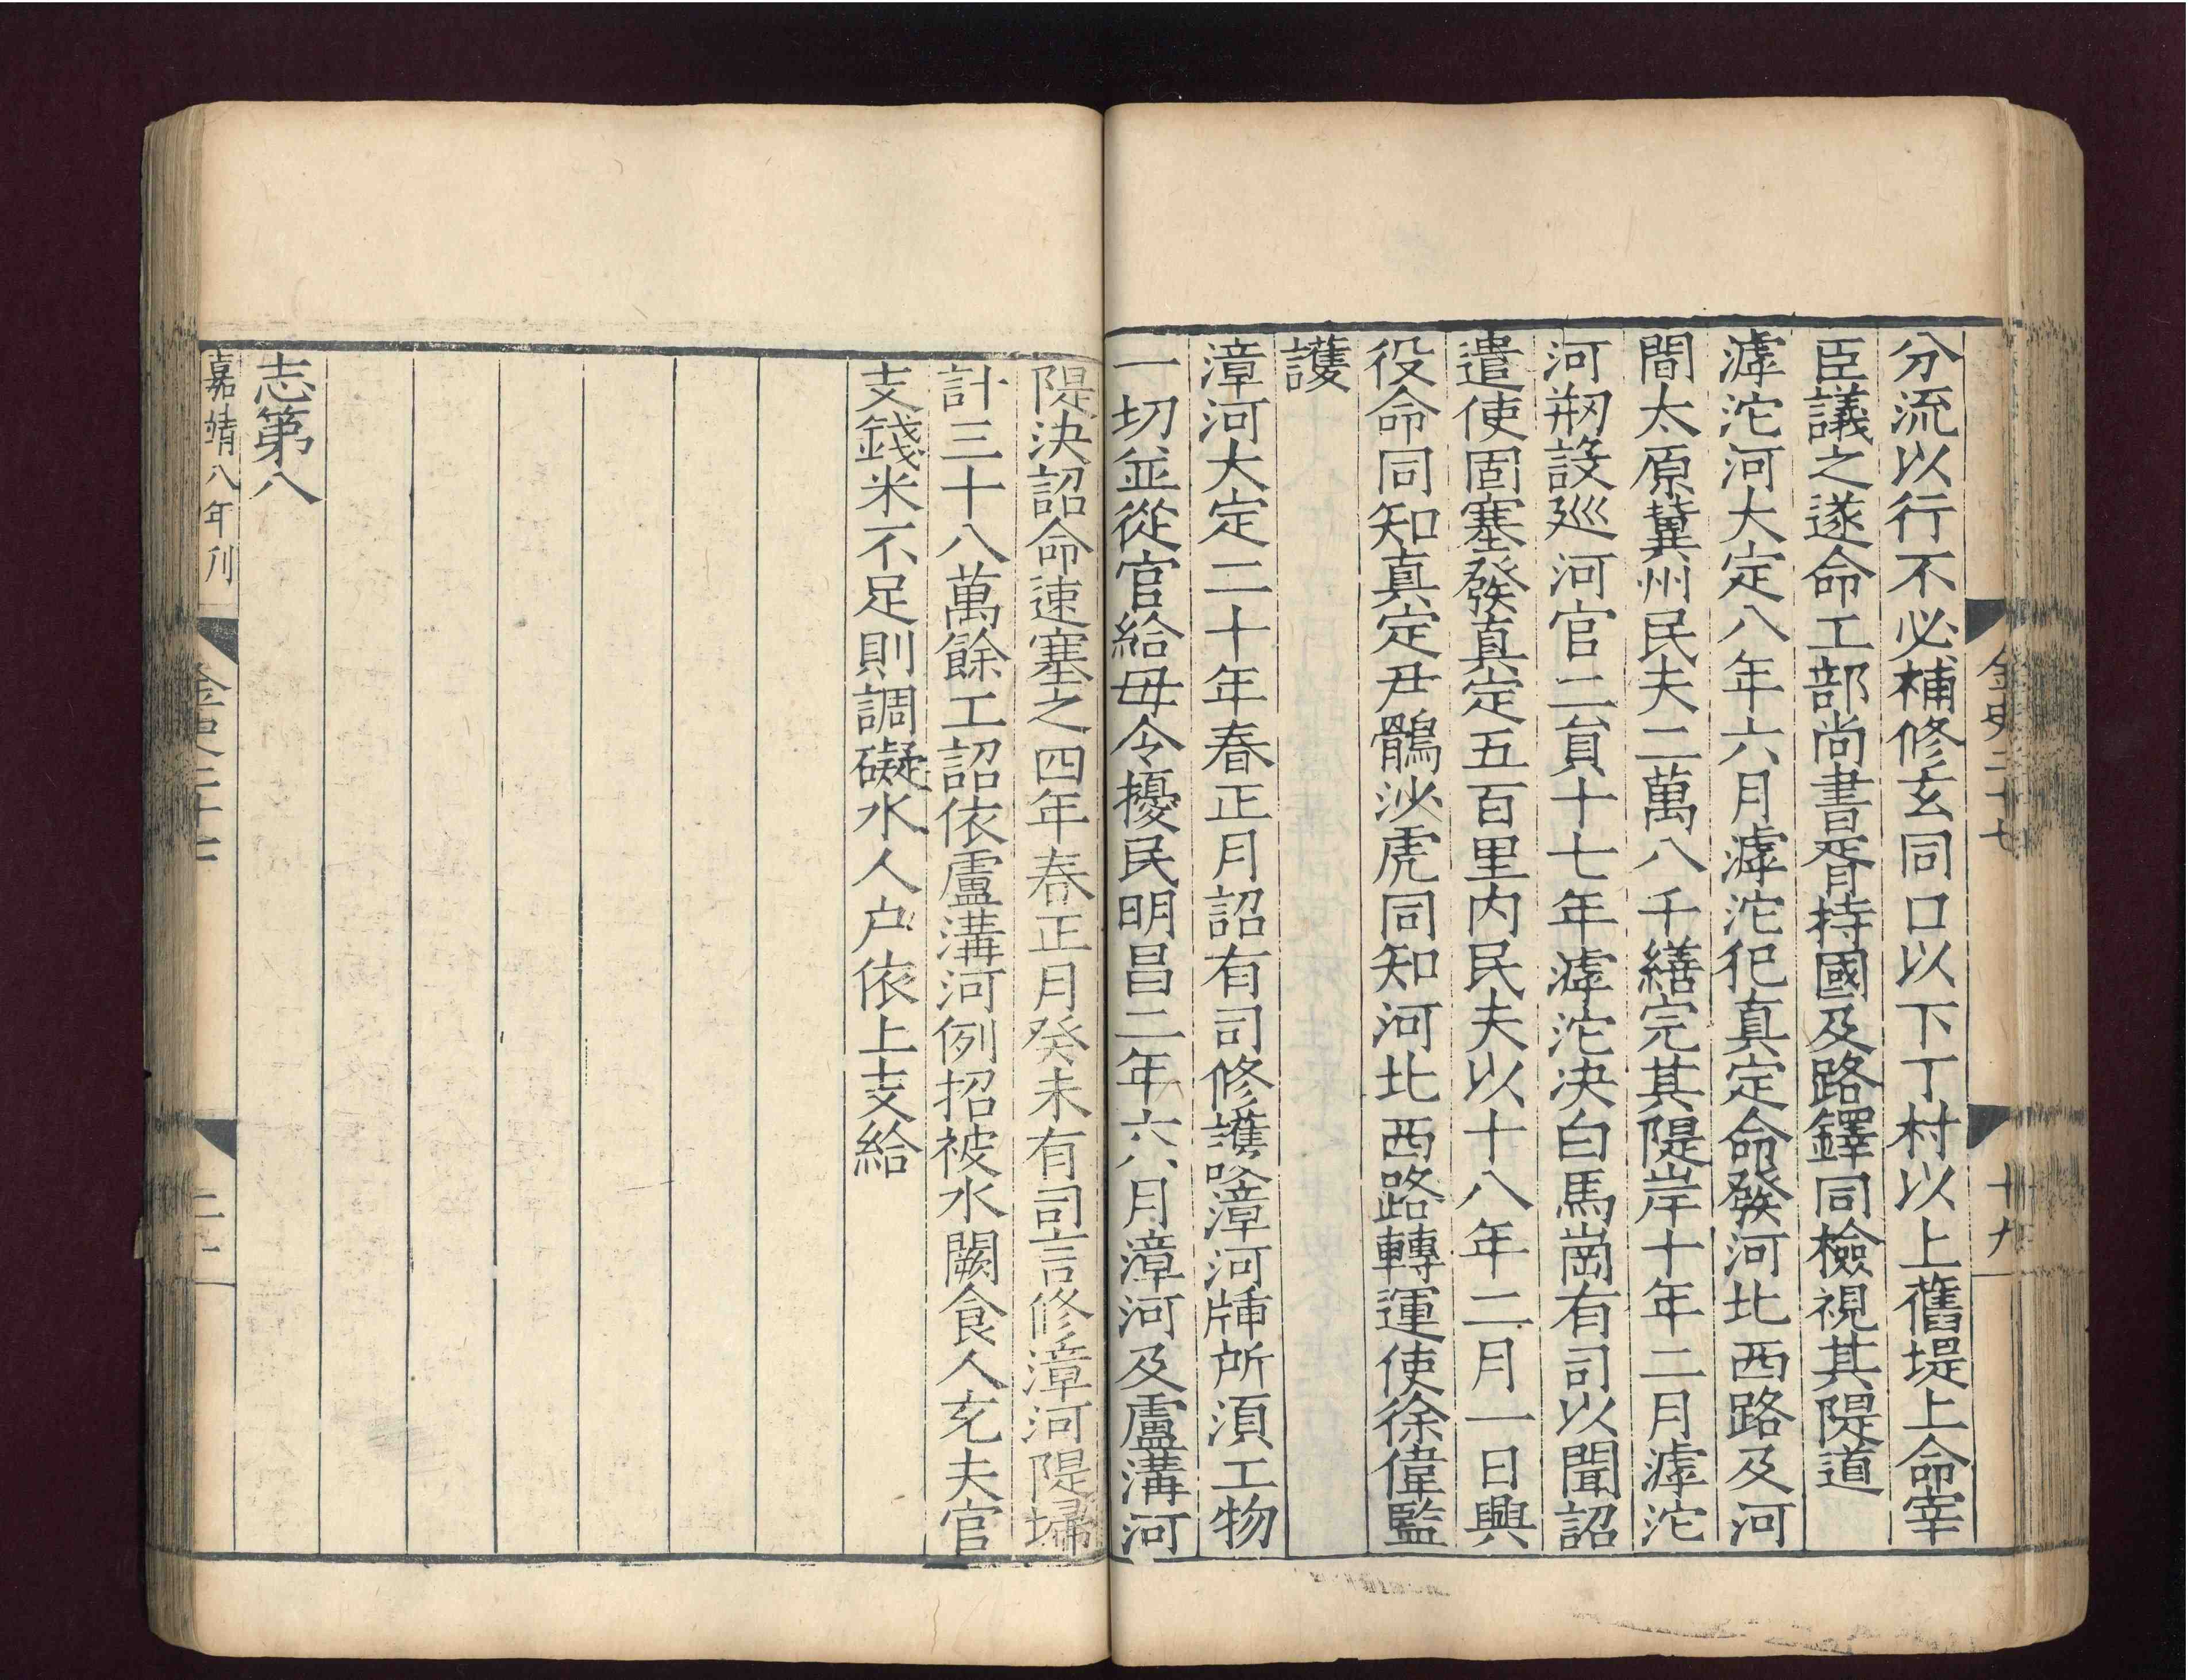 金史二十七
十九
分流以行不必補修玄同口以下丁村以上舊堤上命宰
臣議之遂命工部尚書胥持國及路鐸同檢視其隄道
滹沱河大定八年六月滹沱犯真定命發河北西路及河
間太原冀州民夫二萬八千繕完其隄岸十年二月滹沱
河刱設廵河官二員十七年滹沱決白馬崗有司以聞詔
遣使固塞發真定五百里内民夫以十八年二月一日興
役命同知真定尹鶻沙虎同知河北西路轉運使徐偉監
護
漳河大定二十年春正月詔有司修護漳河牐所須工物
一切並從官給毋令擾民明昌二年六月漳河及盧溝河
隄決詔命速塞之四年春正月癸未有司言修漳河隄埽
計三十八萬餘工詔依盧溝河例招被水闕食人充夫官
支錢米不足則調礙水人户依上支給
志第八
嘉靖八年刊
金史二十七